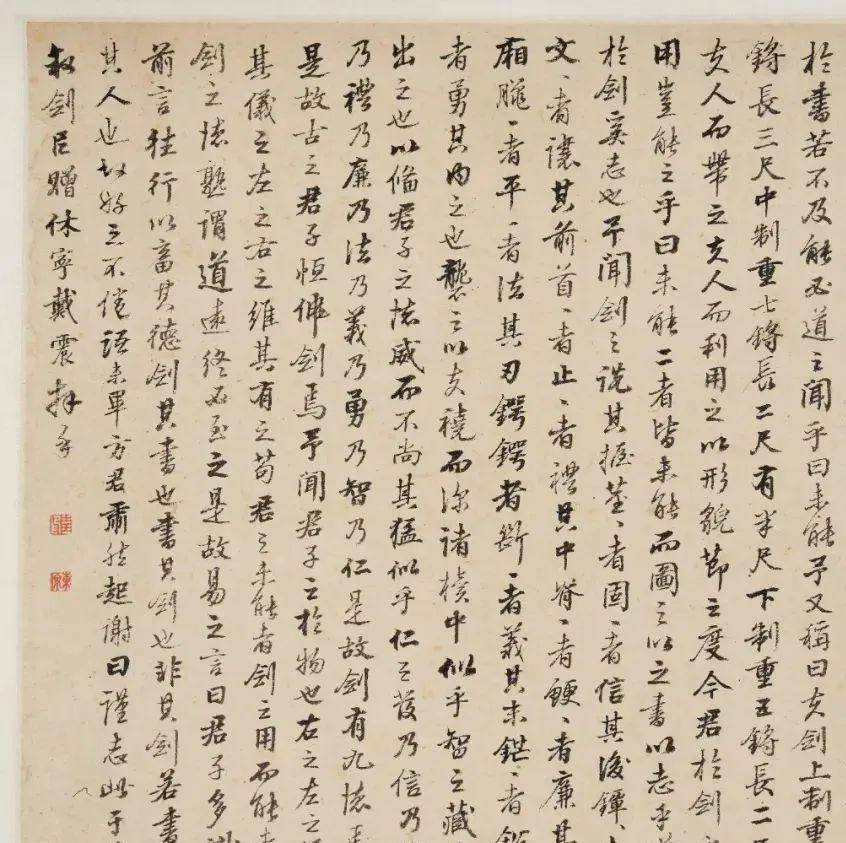 於書若不及能必道之聞乎曰未能予又稱曰夫劍上制重
鋝長三尺中制重七鋝長二尺有半尺下制重五鋝長二
夫人而帶之夫人而利用之以形貌節之度今君於劍之
用豈能之乎曰未能二者皆未能而圖之以之書以志乎
於劍奚志也予聞劍之說其握莖〻者固〻者信其後鐔〻
文〻者讓其前首〻者止〻者禮其中脊〻者鯁〻者廉其
廂臘〻者平〻者法其刃鍔鍔者斷〻者義其末鋩〻者
者勇其內之也襲之以夫襓而深諸櫝中似乎智之藏
出之也以脩君子之德威而不尚其猛似乎仁之發乃信乃
乃禮乃廉乃法乃義乃勇乃智乃仁是故劍有九德
是故古之君子恒佩劍焉予聞君子之於物也右之左之
其儀之左之右之維其有之苟君之未能者劍之用而能
劍之德孰謂道遠終必至之是故易之言曰君子多識
前言往行以畜其德劍其書也書其劍也非其劍若書
其人也故好之不倦語未畢方君肅然起謝曰謹志此于
叙劍臣贈休寧戴震拜手